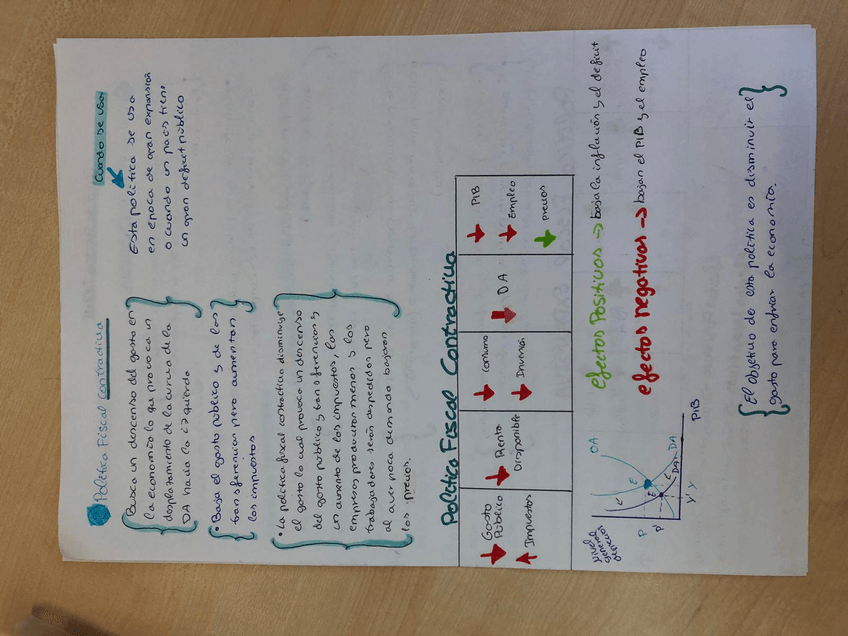 Política Fiscal contractiva
Busca un descenso del gasto en
la economía lo que provoca un
desplazamiento de la curva de la
DA hacia la izquierda
Cuando se usa
Esta política se usa
en época de gran expansión
o cuando un país tiene
un gran deficit público
• Baja el gasto público y de las
transferencias pero aumentan
los impuestos
• La política fiscal contractiva disminuye
el gasto lo cual provoca un descenso
del gasto público y transferencias y
un aumento de los impuestos, las
empresas producirán menos y los
trabajadores serán despedidos pero
al aver poca demanda bajaran
los precios.
Política Fiscal Contractiva
↓ Gasto
Público
↑ Impuestos
↓ Renta
Disponible
↓ Consumo
↓ Inversión
↓ DA
↓ PIB
↓ Empleo
↓ precios
Nivel
general
OA
P
P'
E
E'
DA
DA'
Y' Y
PIB
efectos Positivos → baja la inflación y el deficit
efectos negativos → bajan el PIB y el empleo
El objetivo de esta política es disminuir el
gasto para enfriar la economía.